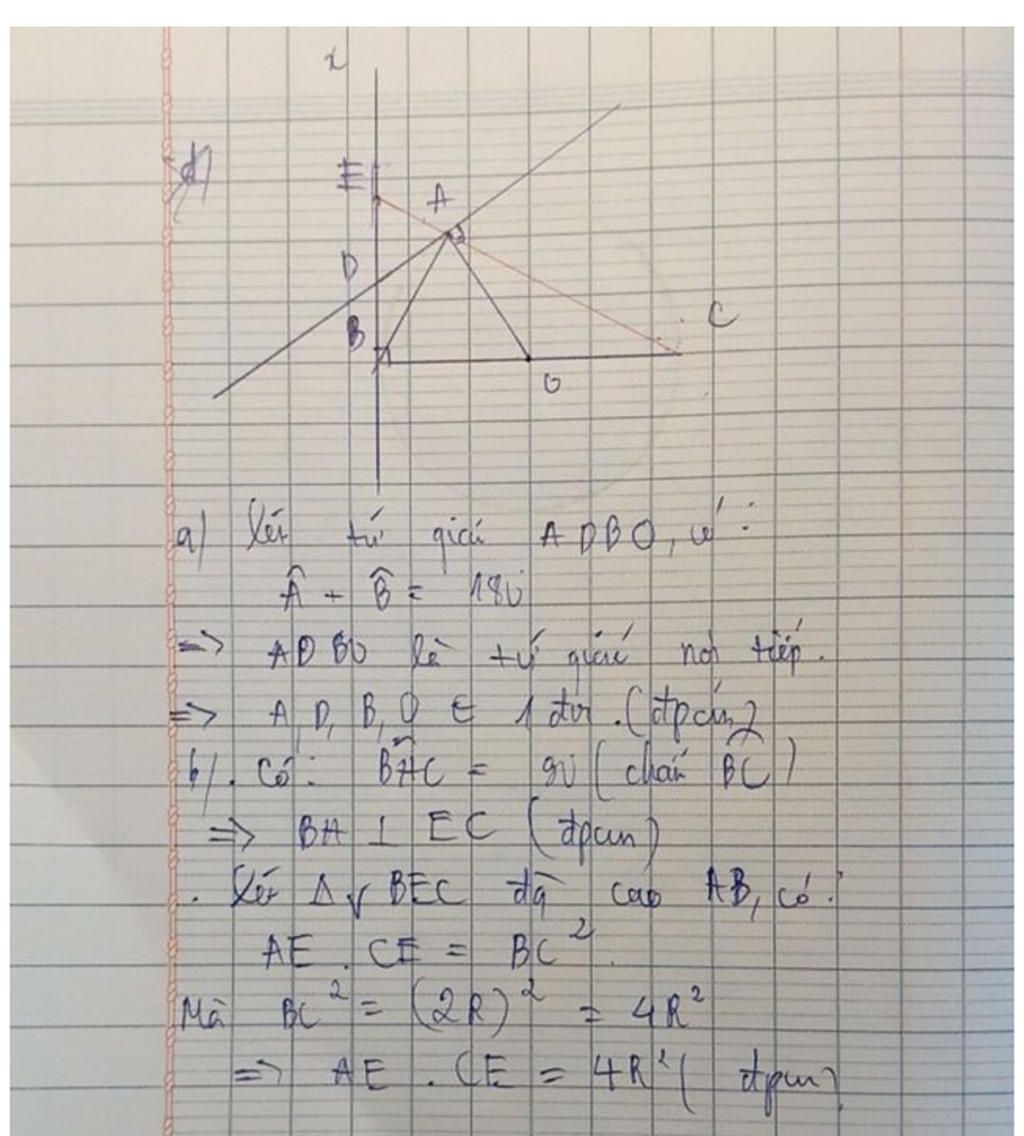 x
d)
E
A
D
B
C
O
a) Xét tứ giác ADBO, có :
Â + B̂ = 180
=> ADBO là tứ giác nội tiếp.
=> A, D, B, O ∈ 1 đtr. (đpcm)
b) . Có: BÂC = 90 (chắn BC)
=> BA ⊥ EC (đpcm)
. Xét Δ√ BEC đg cao AB, có:
AE . CE = BC².
Mà BC² = (2R)² = 4R²
=> AE . CE = 4R² (đpcm)